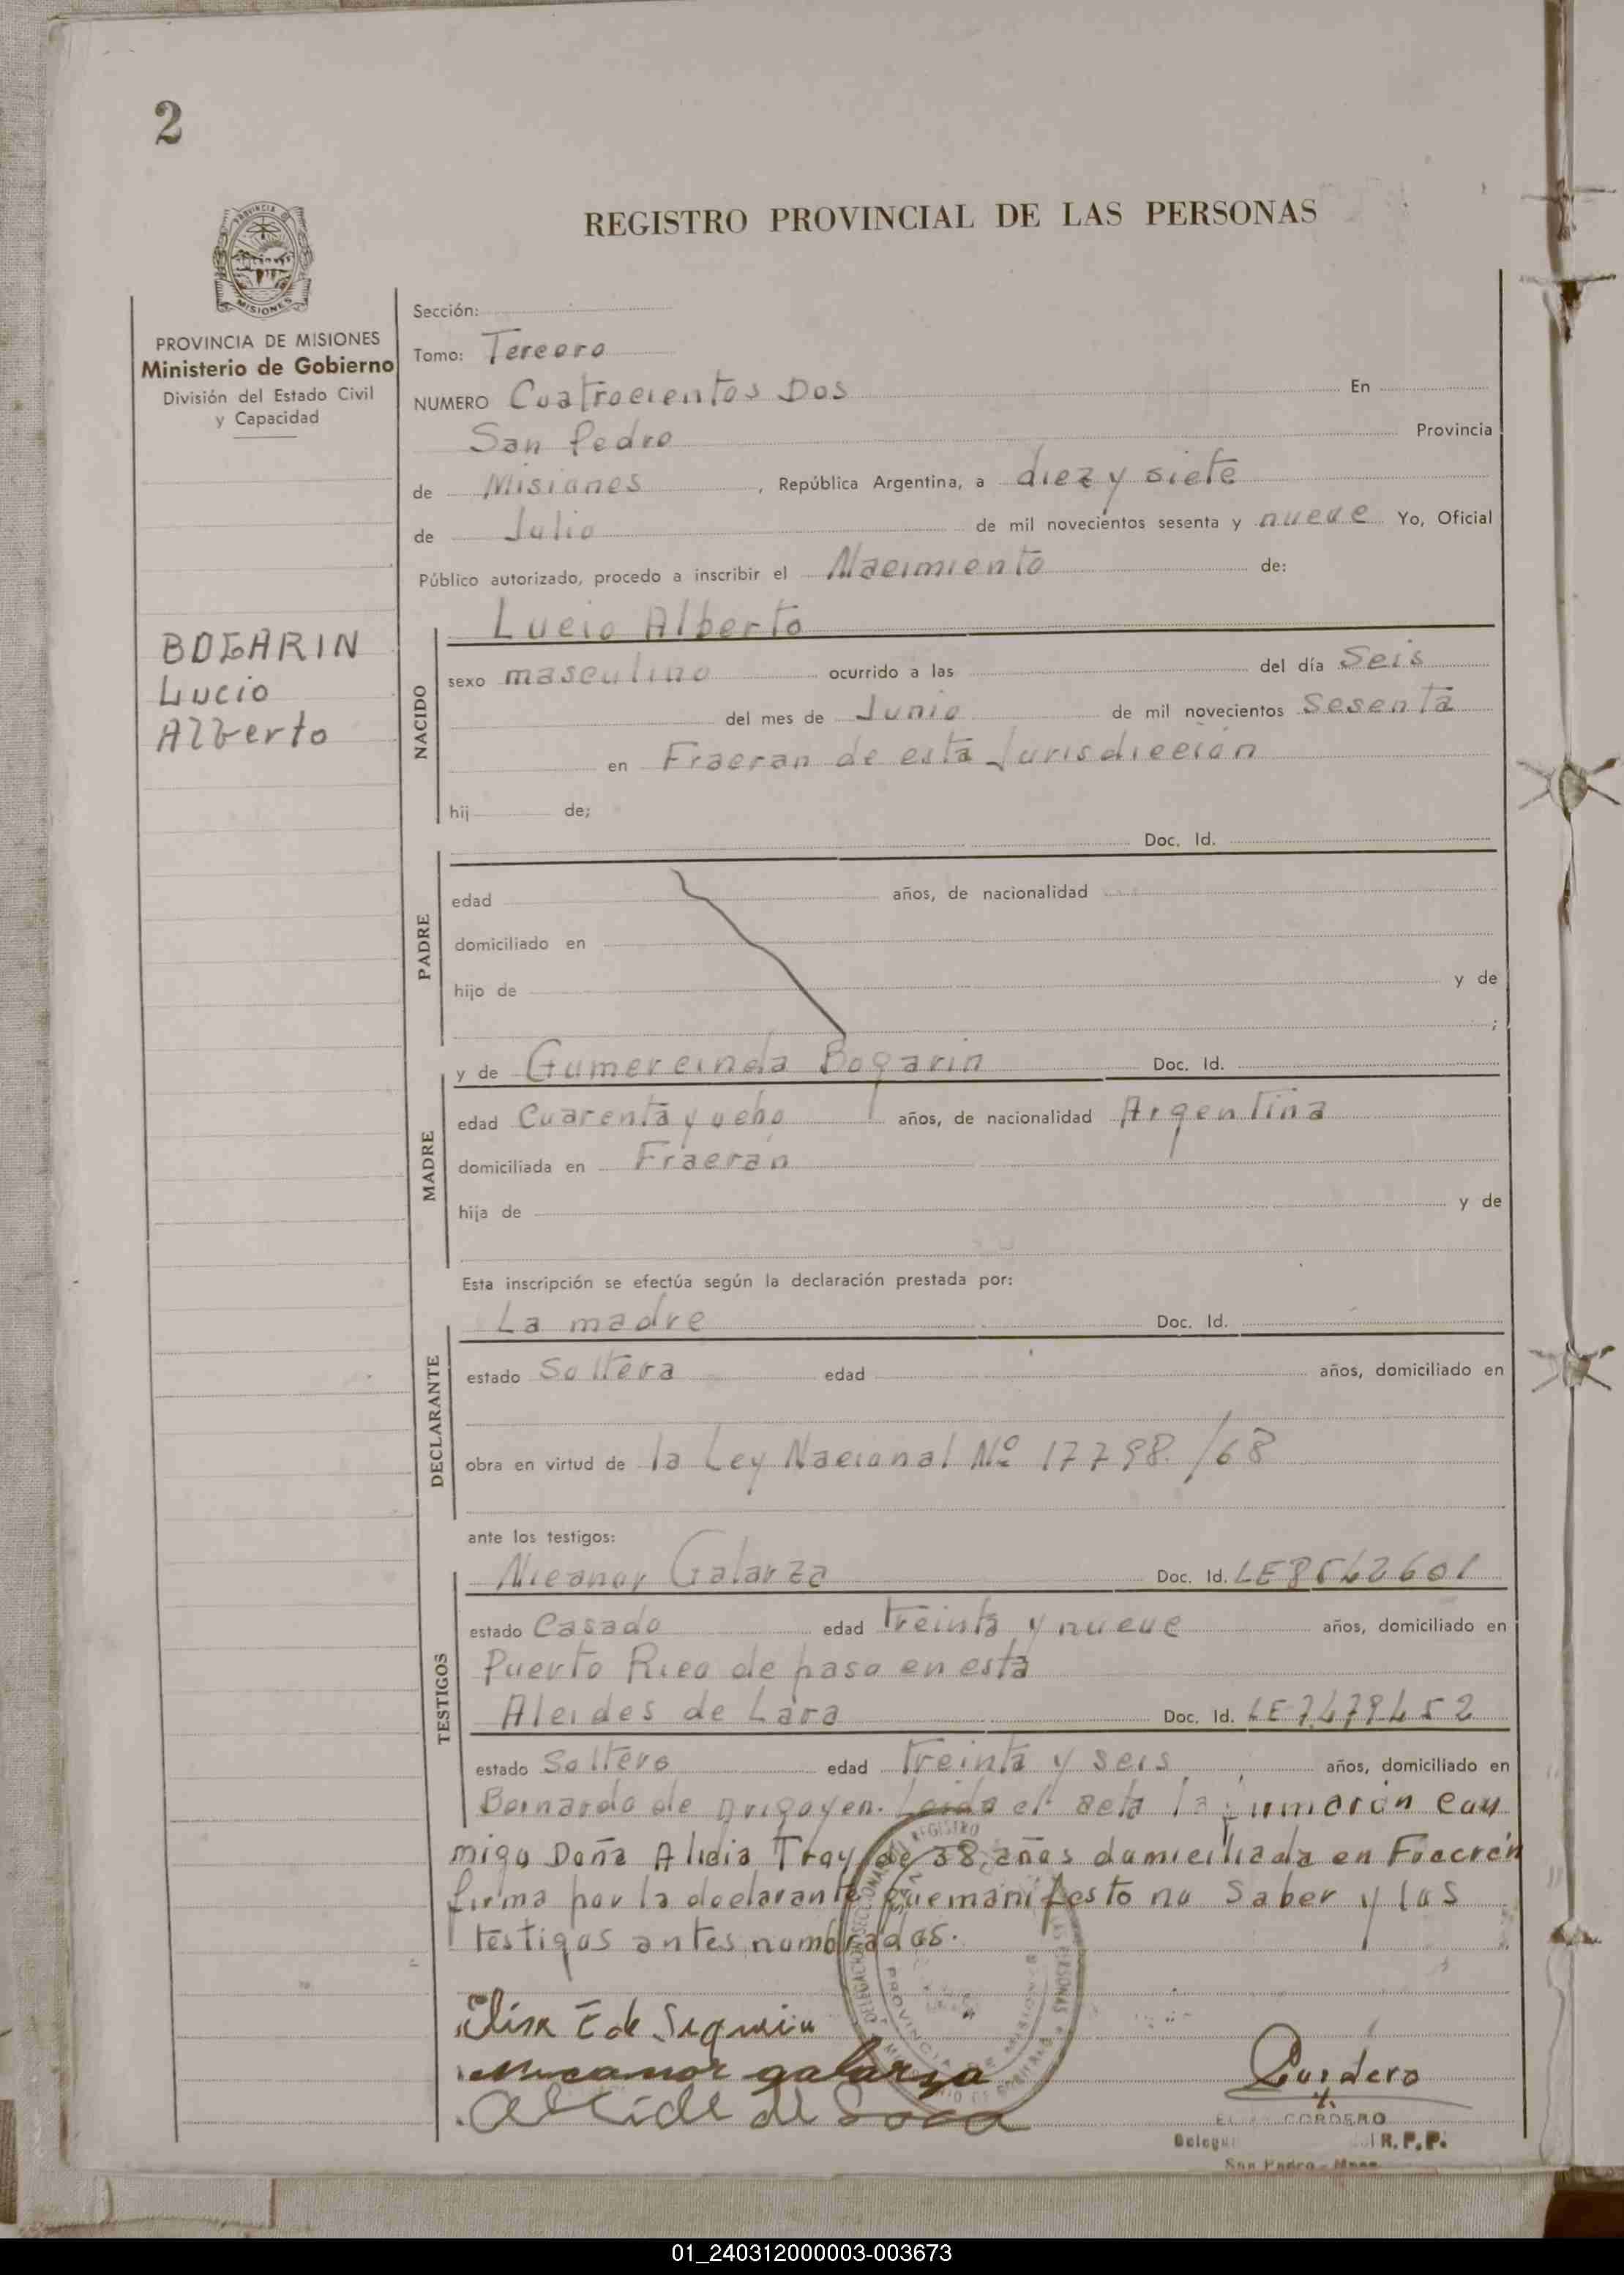 2
REGISTRO PROVINCIAL DE LAS PERSONAS
PROVINCIA DE MISIONES
Ministerio de Gobierno
División del Estado Civil
y Capacidad
BOGARIN
Lucio
Alberto
Sección:
Tomo: Tercero
NUMERO Cuatrocientos Dos En
San Pedro Provincia
de Misiones, República Argentina, a diez y siete
de Julio de mil novecientos sesenta y nueve Yo, Oficial
Público autorizado, procedo a inscribir el Nacimiento de:
Lucio Alberto
NACIDO
sexo masculino ocurrido a las del día Seis
del mes de Junio de mil novecientos Sesenta
en Fracran de esta Jurisdicción
hij de;
Doc. Id.
PADRE
edad años, de nacionalidad
domiciliado en
hijo de y de
;
y de Gumercinda Bogarin Doc. Id.
MADRE
edad Cuarenta y ocho años, de nacionalidad Argentina
domiciliada en Fracran
hija de y de
Esta inscripción se efectúa según la declaración prestada por:
La madre Doc. Id.
DECLARANTE
estado Soltera edad años, domiciliado en
obra en virtud de la Ley Nacional Nº 17798./68
ante los testigos:
Nicanor Galarza Doc. Id. LE8562601
TESTIGOS
estado Casado edad treinta y nueve años, domiciliado en
Puerto Rico de paso en esta
Alcides de Lara Doc. Id. LE7479452
estado Soltero edad treinta y seis años, domiciliado en
Bernardo de Irigoyen. Leida el acta la firmarón con
migo Doña Alidia Troy de 38 años domiciliada en Fracrán
firma por la declarante que manifesto no Saber y los
testigos antes nombrados.
nicanor galarza
Cordero
CORDERO
R.P.P.
San Pedro - Mnes.
01_240312000003-003673